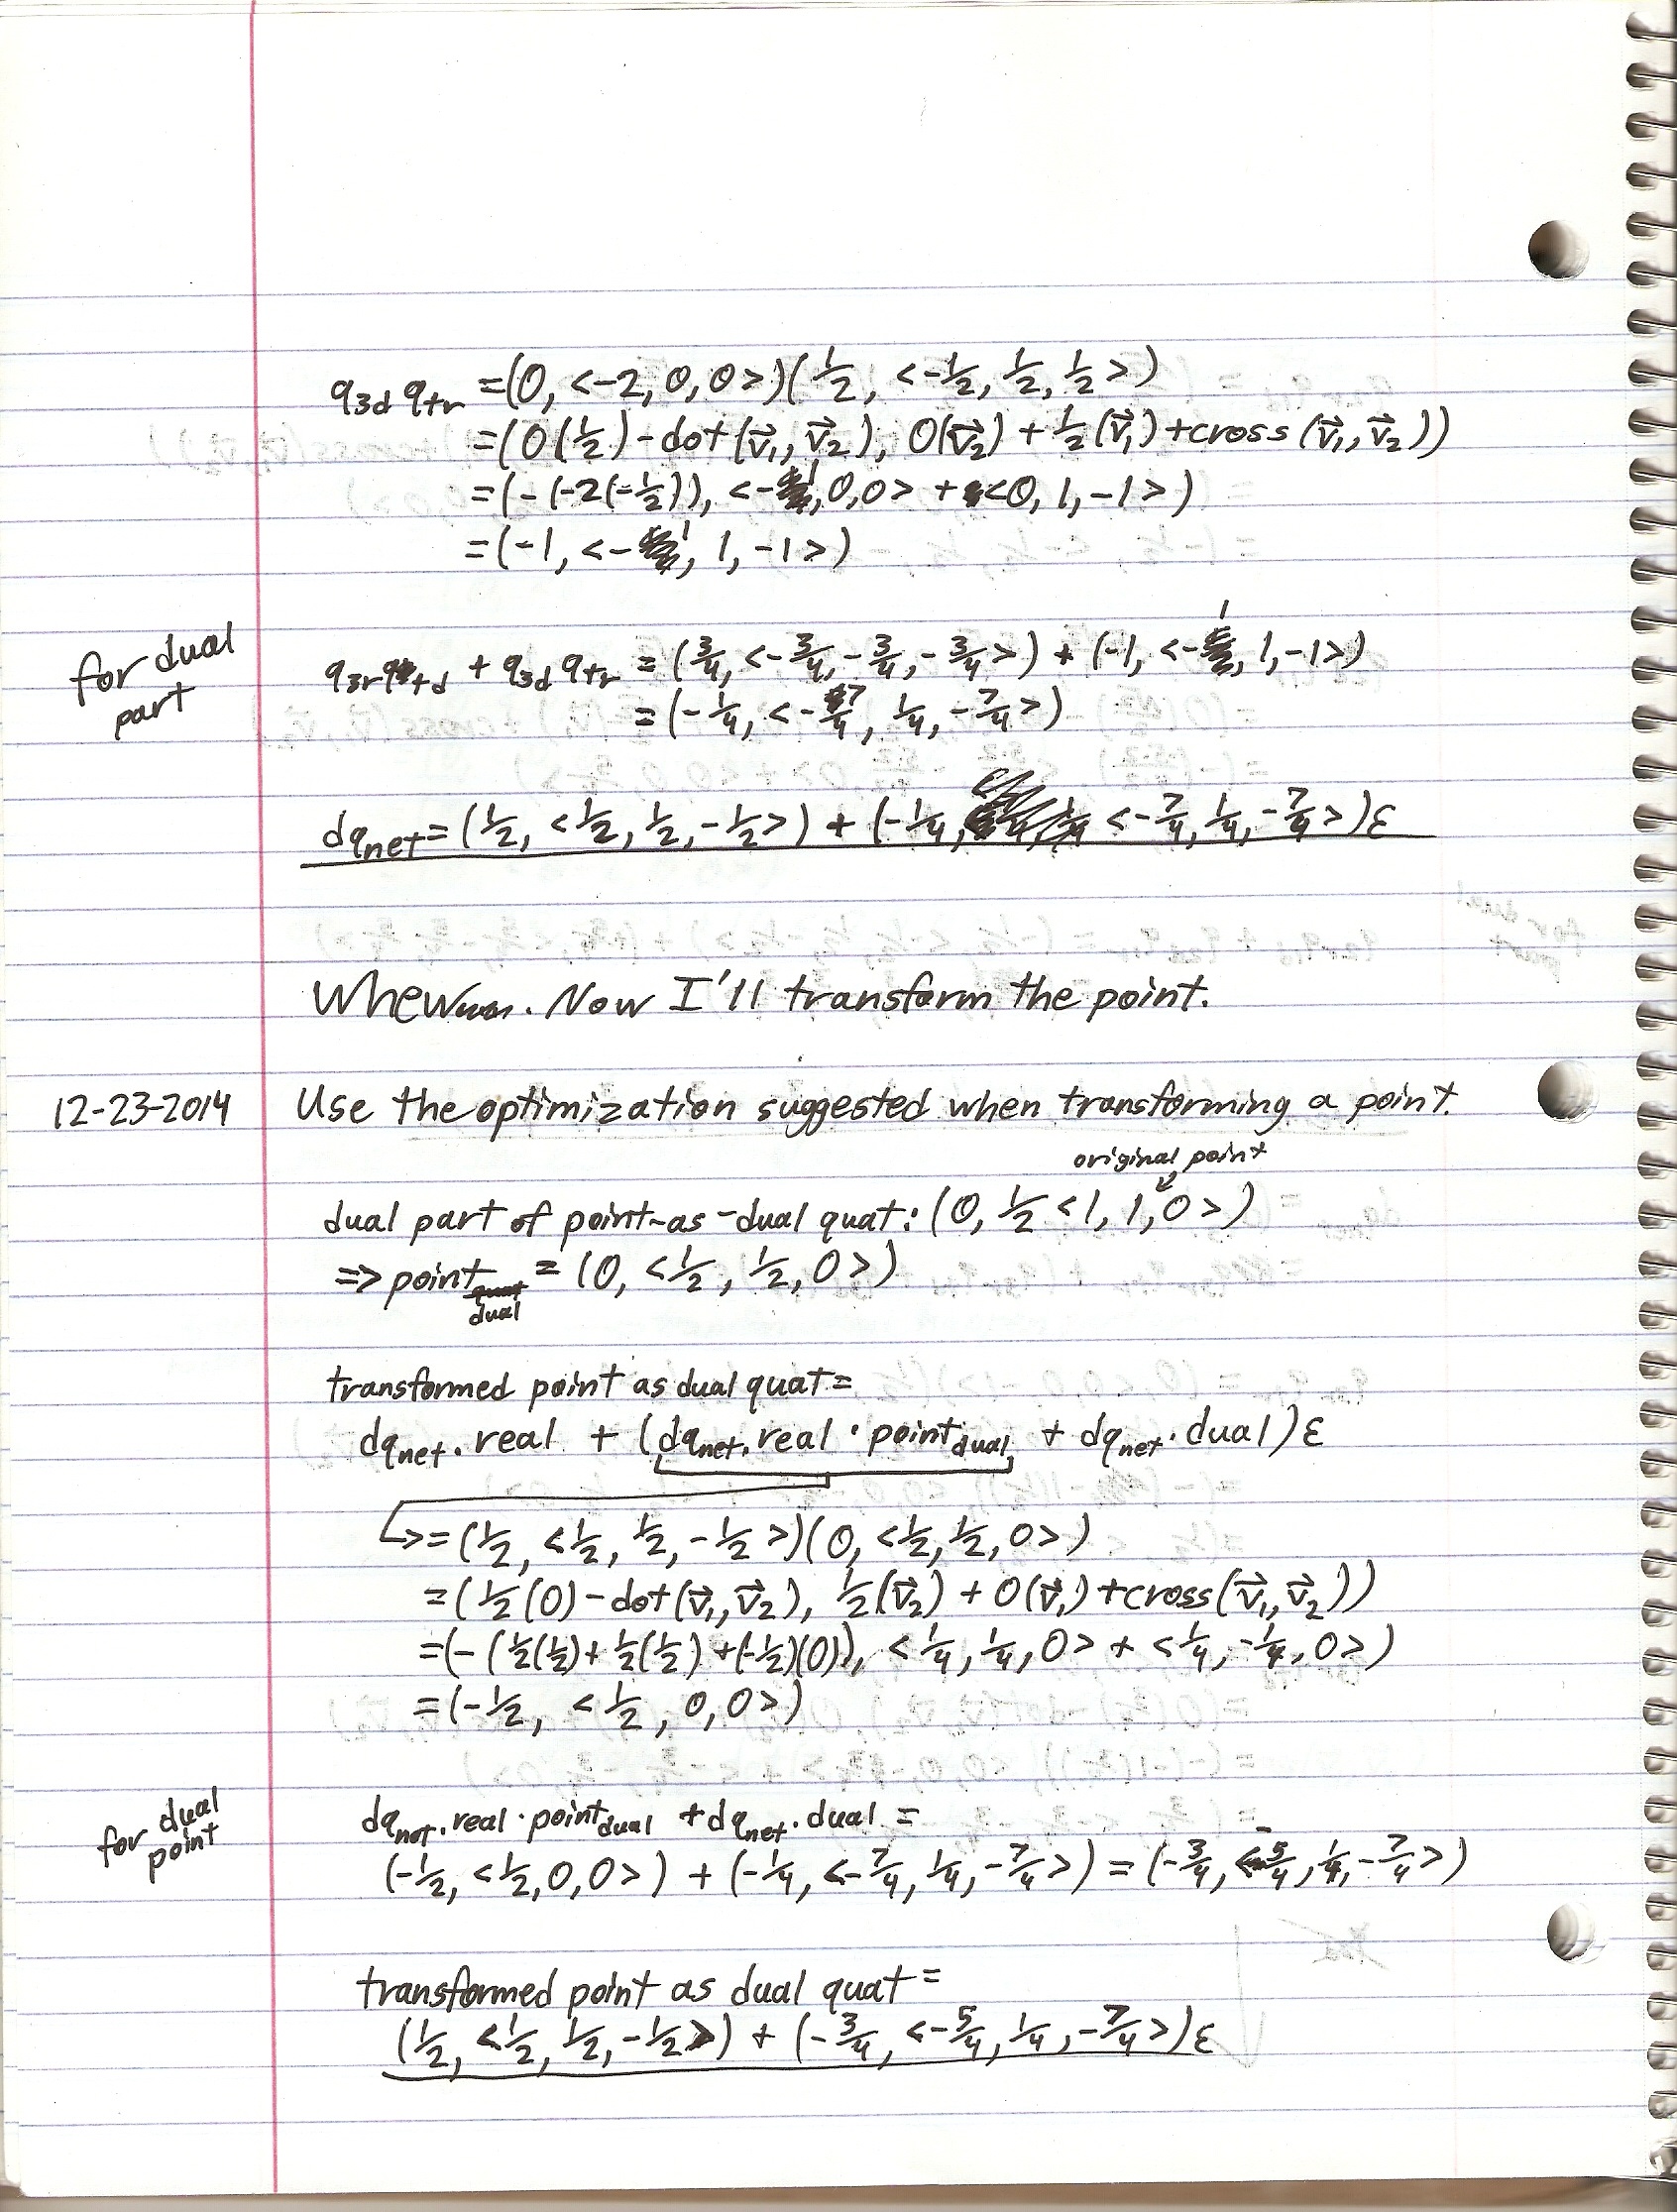 q3d qtr = (0, <-2, 0, 0>)(1/2, <-1/2, 1/2, 1/2>)
= (0(1/2) - dot(v⃗1, v⃗2), 0(v⃗2) + 1/2(v⃗1) + cross(v⃗1, v⃗2))
= (-(-2(-1/2)), <-1, 0, 0> + <0, 1, -1>)
= (-1, <-1, 1, -1>)
for dual
part
q3r qtd + q3d qtr = (3/4, <-3/4, -3/4, -3/4>) + (-1, <-1, 1, -1>)
= (-1/4, <-7/4, 1/4, -7/4>)
dqnet = (1/2, <1/2, 1/2, -1/2>) + (-1/4, <-7/4, 1/4, -7/4>)ε
Whew. Now I'll transform the point.
12-23-2014 Use the optimization suggested when transforming a point.
original point
dual part of point-as-dual quat: (0, 1/2 <1, 1, 0>)
=> point dual = (0, <1/2, 1/2, 0>)
transformed point as dual quat =
dqnet.real + (dqnet.real · point dual + dqnet.dual)ε
↳ = (1/2, <1/2, 1/2, -1/2>)(0, <1/2, 1/2, 0>)
= (1/2(0) - dot(v⃗1, v⃗2), 1/2(v⃗2) + 0(v⃗1) + cross(v⃗1, v⃗2))
= (-(1/2(1/2) + 1/2(1/2) + (-1/2)(0)), <1/4, 1/4, 0> + <1/4, -1/4, 0>)
= (-1/2, <1/2, 0, 0>)
for dual
point
dqnet.real · point dual + dqnet.dual =
(-1/2, <1/2, 0, 0>) + (-1/4, <-7/4, 1/4, -7/4>) = (-3/4, <-5/4, 1/4, -7/4>)
transformed point as dual quat =
(1/2, <1/2, 1/2, -1/2>) + (-3/4, <-5/4, 1/4, -7/4>)ε